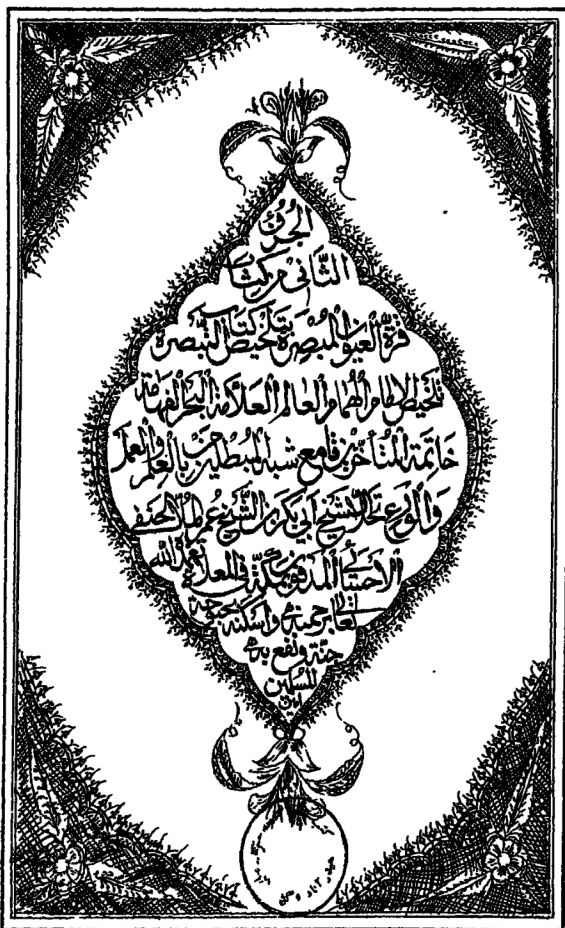 الجزؤ
الثاني من كتاب
قرة العيون المبصرة بتلخيص كتاب التبصرة
تلخيص الامام الهمام العالم العلامة البحر الفهامة
خاتمة المتأخرين قامع شبه المبطلين من بالعلم والعمل
والورع تحلى الشيخ أبي بكر بن الشيخ عمر الملا الحنفي
الاحسائي المدفون بمكة في المعلاة تغمده الله
تعالى برحمته واسكنه بحبوحة
جنته ونفع به
المسلمين
امين